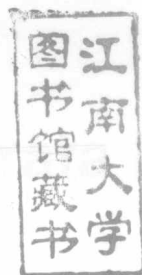 江南大学
图书馆藏书